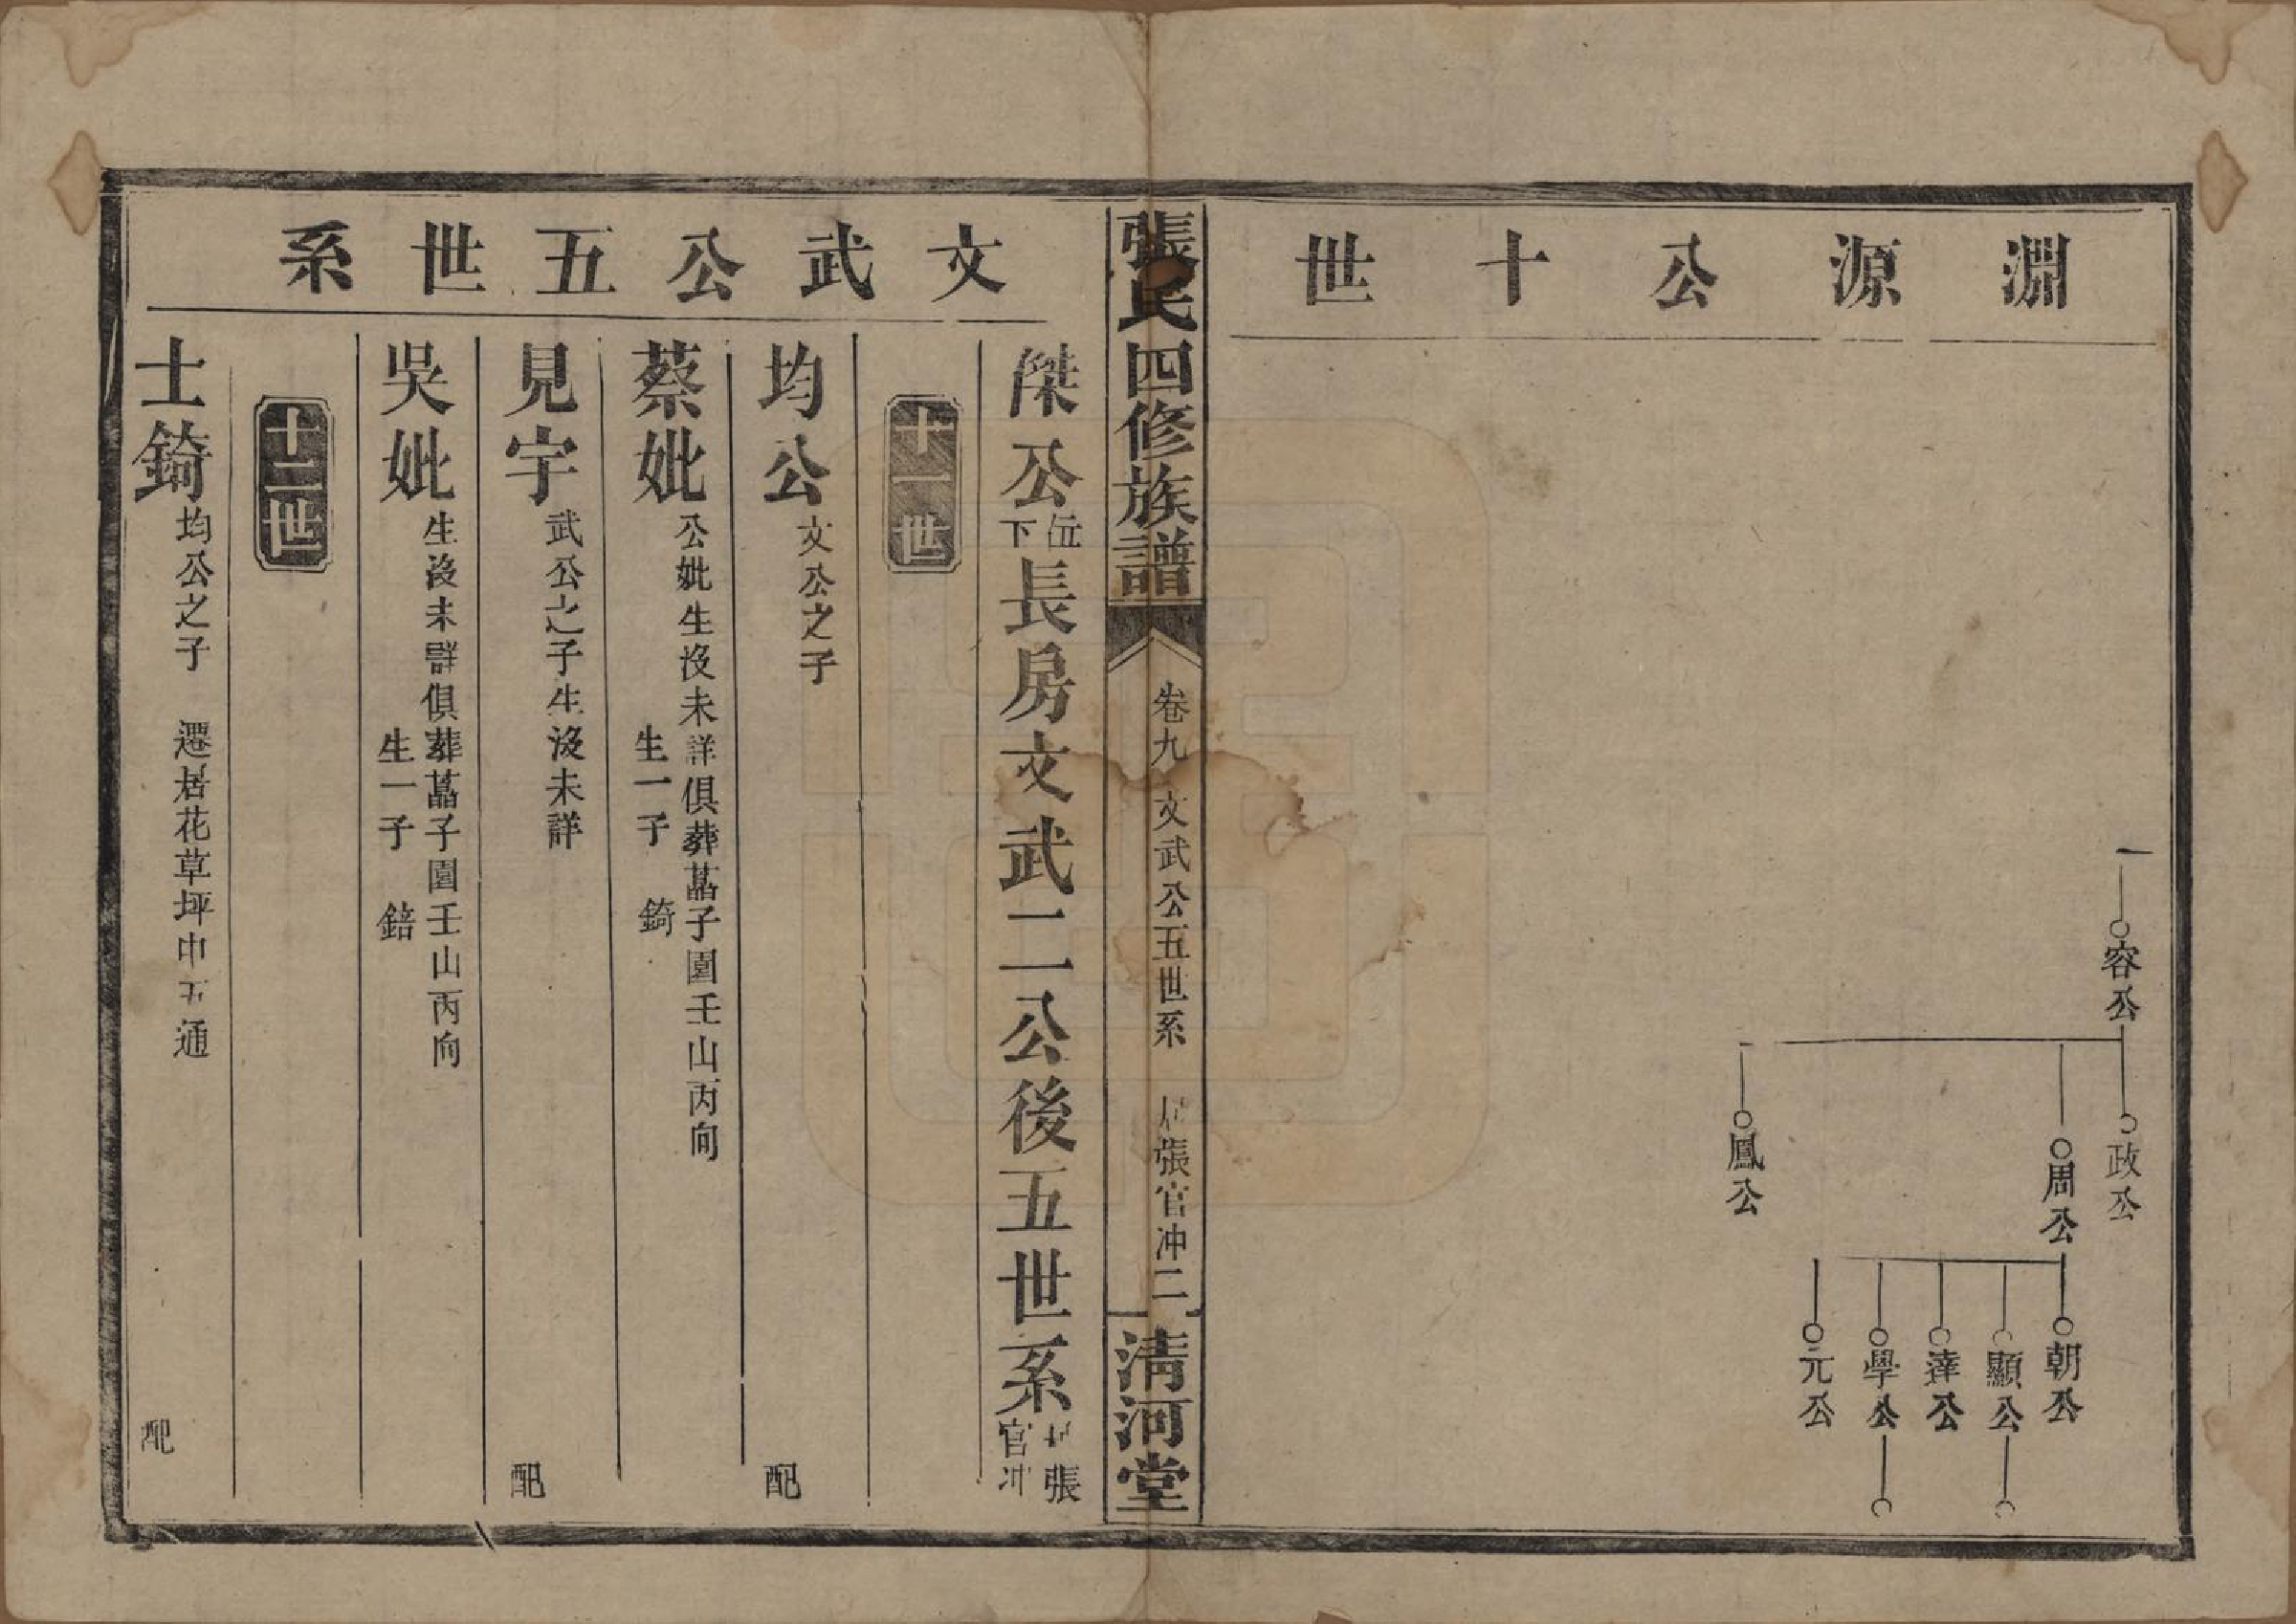 淵源公十世
容公
政公
周公
鳳公
朝公
顯公
達公
學公
元公
張氏四修族譜
卷九 文武公五世系 居張官冲二
清河堂
文武公五世系
傑公位下長房文武二公後五世系居張官冲
十一世
均公 文公之子 配
蔡妣 公妣生没未詳俱葬菖子園壬山丙向
生一子 錡
見宇 武公之子生没未詳 配
吳妣 生没未詳俱葬菖子園壬山丙向
生一子 錇
十二世
士錡 均公之子 遷居花草坪巾五通 配